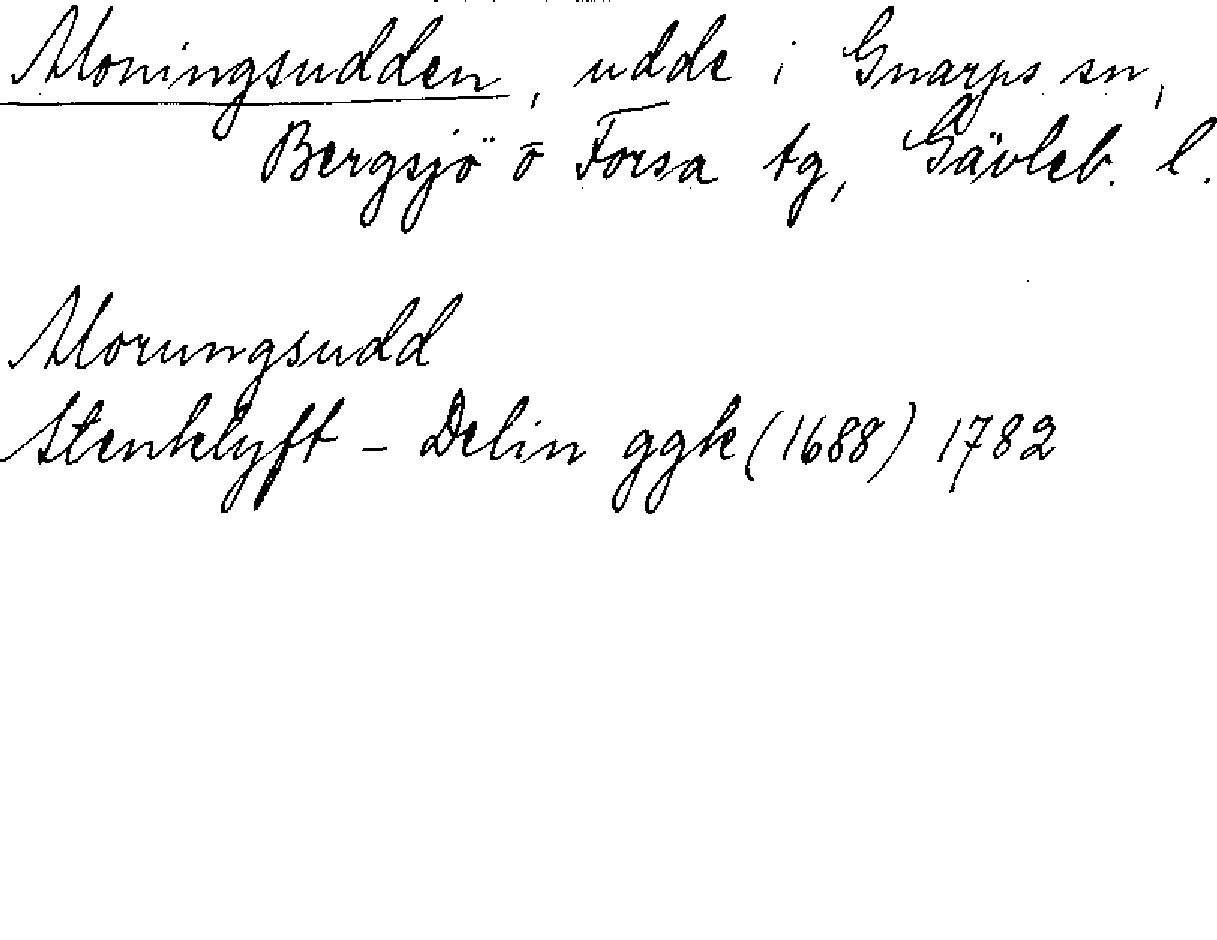 Moningsudden, udde i Gnarps sn,
Bergsjö o Forsa tg, Gävleb. l.
Morungsudd
Stenklyft - Delin ggk (1688) 1782